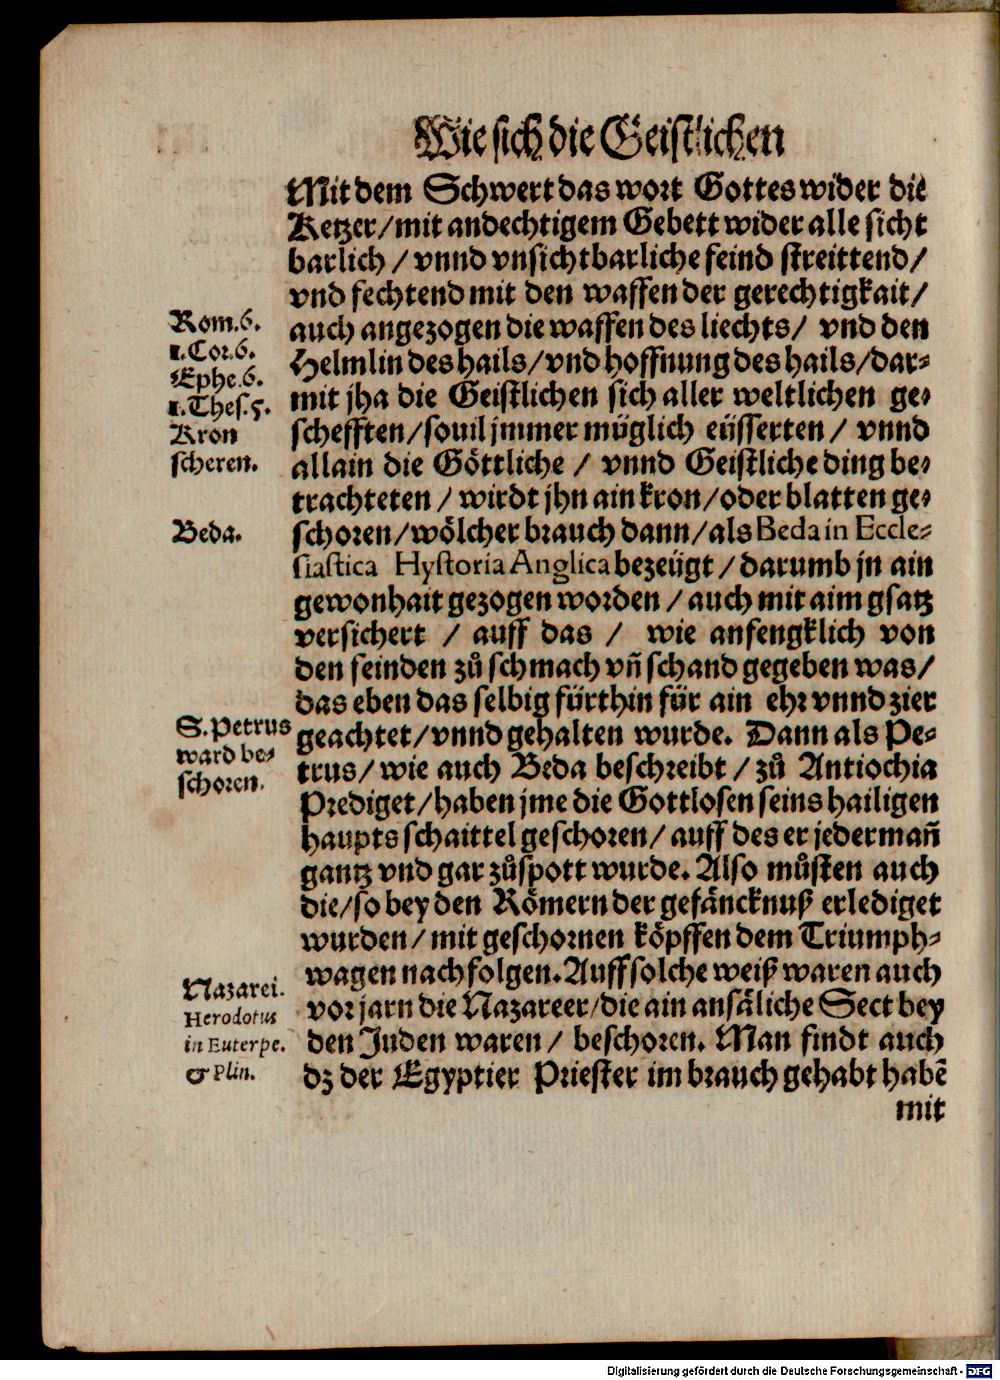 Wie sich die Geistlichen
Mit dem Schwert das wort Gottes wider die
Ketzer/mit andechtigem Gebett wider alle sicht
barlich / vnnd vnsichtbarliche feind streittend/
vnd fechtend mit den waffen der gerechtigkait/
auch angezogen die waffen des liechts/ vnd den
Helmlin des hails/vnd hoffnung des hails/dar-
mit jha die Geistlichen sich aller weltlichen ge-
schefften/souil jmmer müglich eüsserten / vnnd
allain die Göttliche / vnnd Geistliche ding be-
trachteten / wirdt jhn ain kron/oder blatten ge-
schoren/wölcher brauch dann/als Beda in Eccle-
siastica Hystoria Anglica bezeügt / darumb jn ain
gewonhait gezogen worden / auch mit aim gsatz
versichert / auff das / wie anfengklich von
den feinden zů schmach vñ schand gegeben was/
das eben das selbig fürthin für ain ehr vnnd zier
geachtet/vnnd gehalten wurde. Dann als Pe-
trus/ wie auch Beda beschreibt / zů Antiochia
Prediget/haben jme die Gottlosen seins hailigen
haupts schaittel geschoren/ auff des er jederman̄
gantz vnd gar zůspott wurde. Also můsten auch
die/so bey den Römern der gefäncknuß erlediget
wurden/ mit geschornen köpffen dem Triumph-
wagen nachfolgen. Auff solche weiß waren auch
vor jarn die Nazareer/die ain ansäliche Sect bey
den Juden waren / beschoren. Man findt auch
dz der Egyptier Priester im brauch gehabt habē
mit
Rom.6.
1.Cor.6.
Ephe.6.
1.Thes.5.
Kron
scheren.
Beda.
S.Petrus
ward be-
schoren.
Nazarei.
Herodotus
in Euterpe.
& Plin.
Digitalisierung gefördert durch die Deutsche Forschungsgemeinschaft - DFG